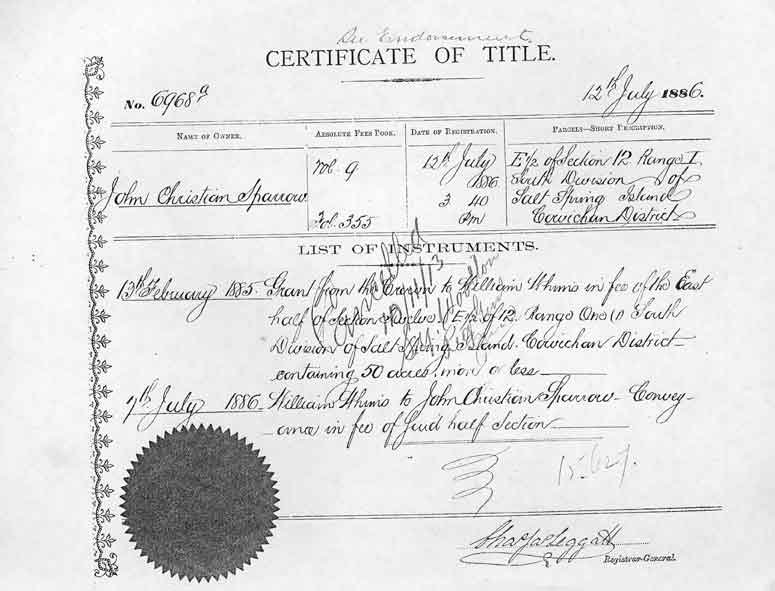 See Endorsement.
CERTIFICATE OF TITLE.
No. 6968a
12th July 1886.
NAME OF OWNER.
ABSOLUTE FEES BOOK.
DATE OF REGISTRATION.
PARCELS—SHORT DESCRIPTION.
John Christian Sparrow
Vol. 9
Fol. 355
12th July
1886
3 40
Pm
E½ of Section 12 Range I.
South Division of
Salt Spring Island
Cowichan District
LIST OF INSTRUMENTS.
Cancelled
13th February 1885. Grant from the Crown to William Whims in fee of the East
half of Section twelve (E½ of 12. Range One (1) South
Division of Salt Spring Island. Cowichan District
containing 50 acres, more or less
7th July 1886 William Whims to John Christian Sparrow - Convey-
ance in fee of said half Section
Chas Jas Leggatt
Registrar-General.